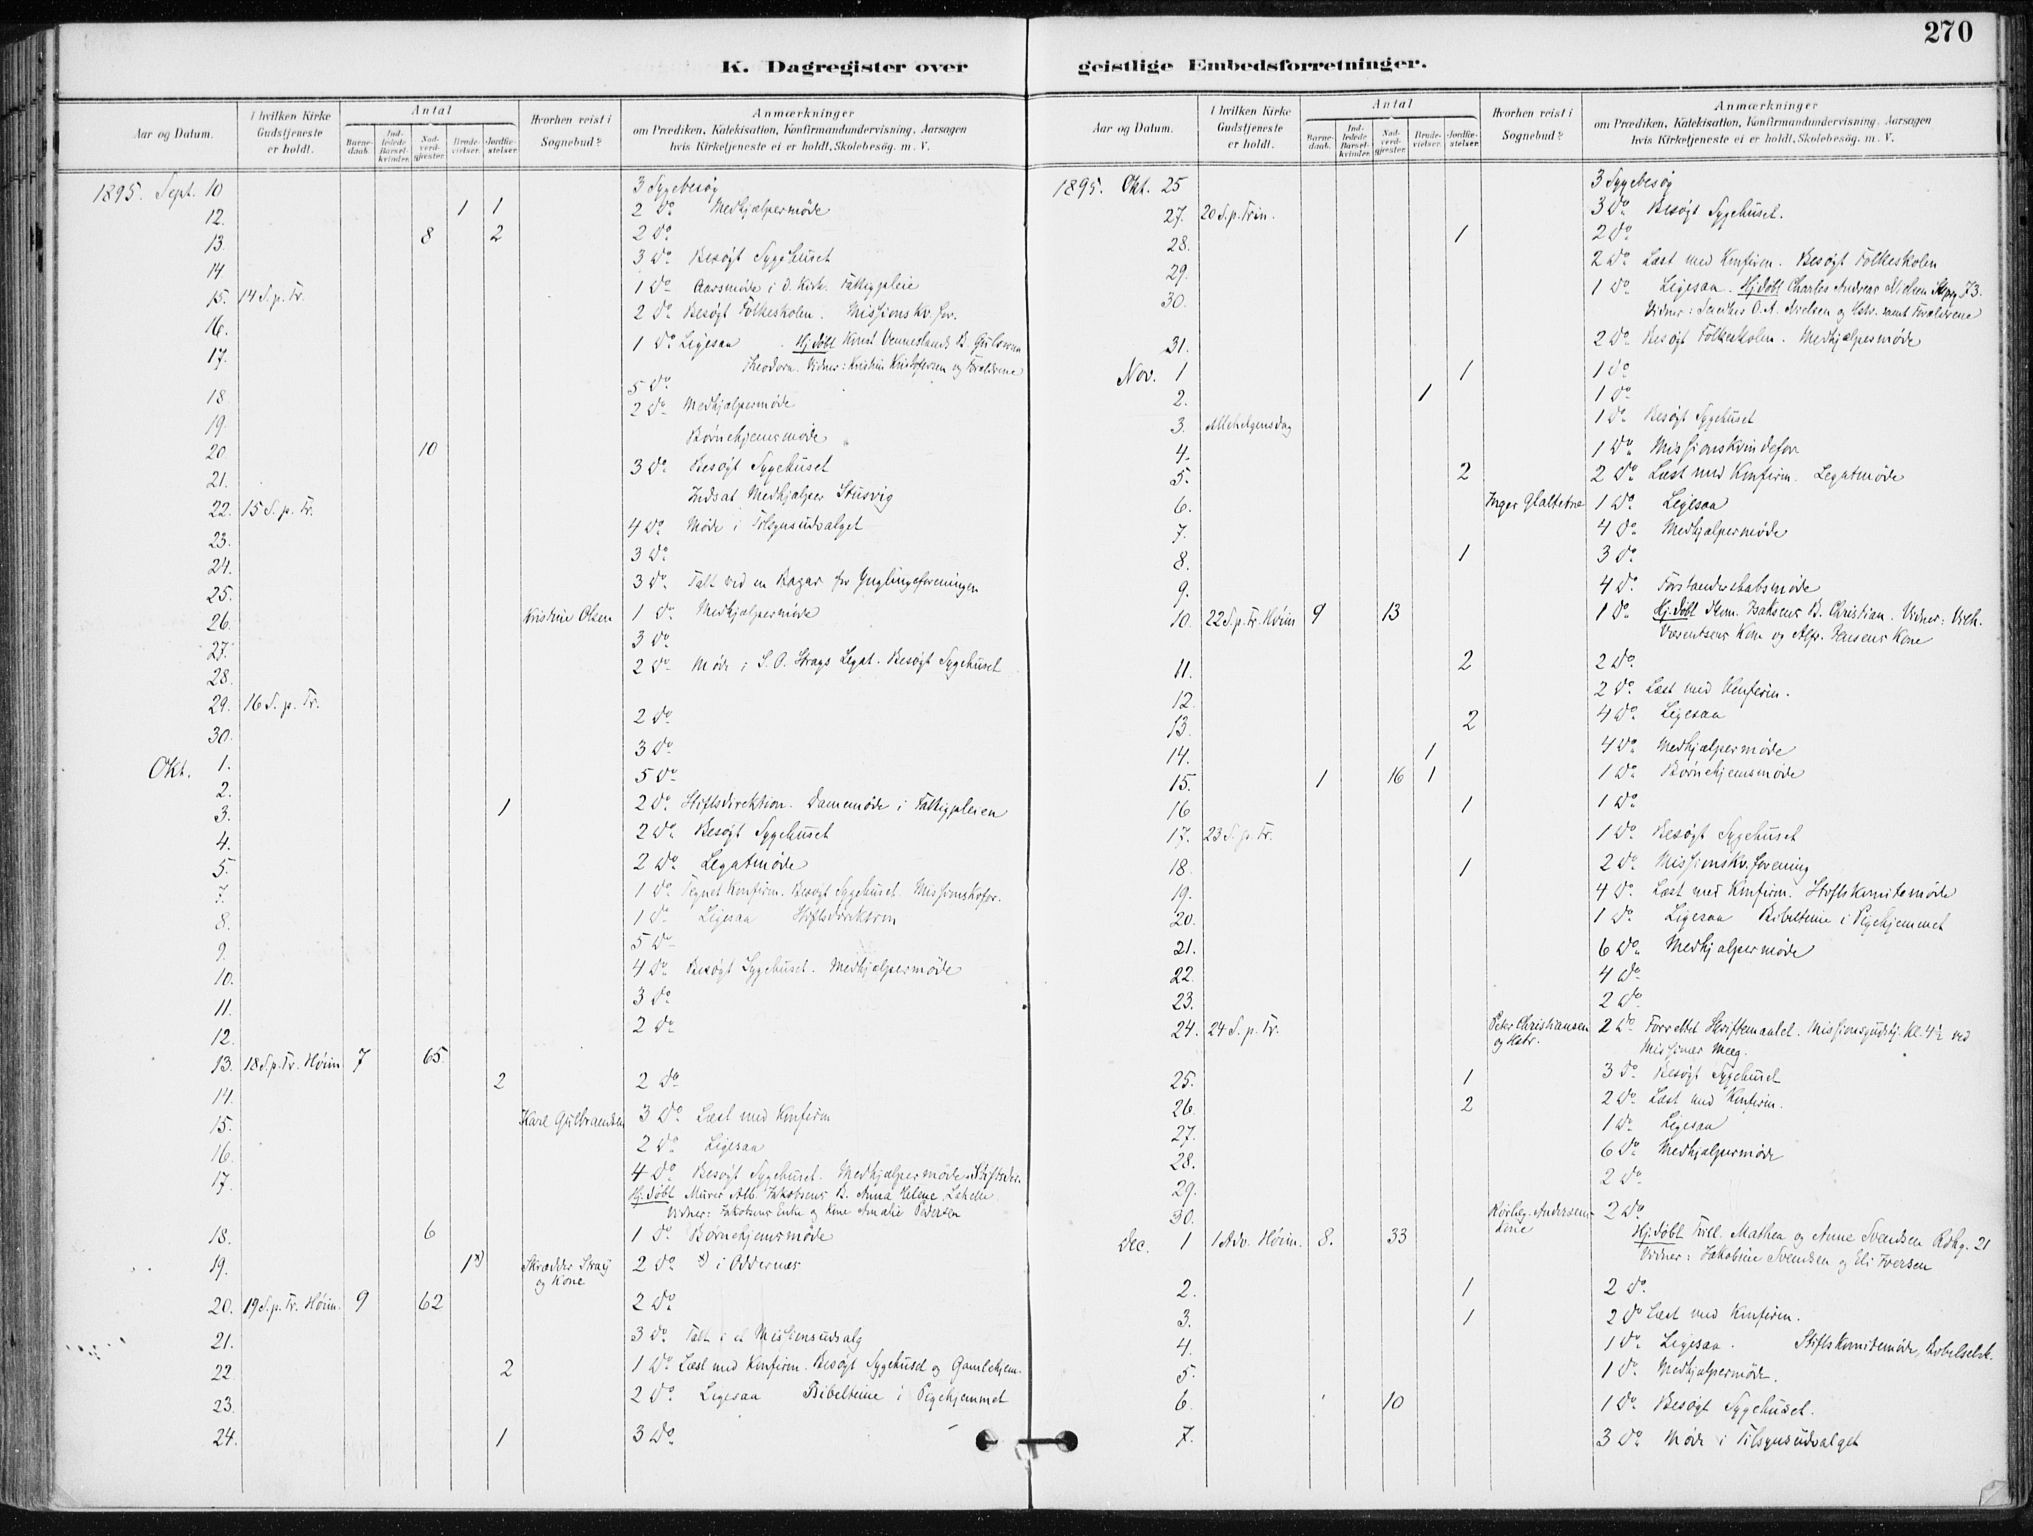 270
K. Dagregister over geistlige Embedsforretninger.
Aar og Datum. I hvilken Kirke Gudstjeneste er holdt. Antal Barnedaab. Indledede Barselkvinder. Nadverdgjester. Brudevielser. Jordfæstelser. Hvorhen reist i Sognebud? Anmærkninger om Prædiken, Katekisation, Konfirmandundervisning, Aarsagen hvis Kirketjeneste ei er holdt, Skolebesøg. m. V.
1895. Sept. 10 3 Sygebesøg
12. 1 1 2 Do Medhjælpermøde
13. 8 2 2 Do
14 3 Do Besøgt Sygehuset
15. 14 S. p. Tr. 1 Do Aarsmøde i d. Kirk. Fattigpleie
16. 2 Do Besøgt Folkeskolen. Missionskv. for.
17. 1 Do Ligesaa Hj.døbt Knut Venneslands B.
Theodora. Vidner: Kristin Kristofersen og Forældrene
18 5 Do
19. 2 Do Medhjælpermøde
20 10 Børnehjemsmøde
21. 3 Do Besøgt Sygehuset
22. 15 S. p. Tr. Indsat Medhjælper Stusvig
23. 4 Do Møde i Tilsynsudvalget
24. 3 Do
25. 3 Do Talt ved en Bazar for Ynglingeforeningen
26. Kristine Olsen 1 Do Medhjælpermøde
27. 3 Do
28. 2 Do Møde i S. O. Strays Legat. Besøgt Sygehuset
29. 16 S. p. Tr.
30. 2 Do
Okt. 1. 3 Do
2. 5 Do
3. 1 2 Do Stiftsdirektion. Damemøde i Fattigpleien
4. 2 Do Besøgt Sygehuset
5. 2 Do Legatmøde
7. 1 Do Tegnet Konfirm. Besøgt Sygehuset. Missionskvfor.
8. 1 Do Ligesaa Stiftsdirektion
9. 5 Do
10. 4 Do Besøgt Sygehuset. Medhjælpermøde
11. 3 Do
12. 2 Do
13. 18 S. p. Tr. Høim 7 65.
14. 2 2 Do
15. Karl Gulbrandsen 3 Do Læst med Konfirm
16. 2 Do Ligesaa
17. 4 Do Besøgt Sygehuset. Medhjælpermøde. Stiftsdir.
Hj.døbt Murer Alb. Jakobsens B. Anna Helene
Vidner: Jakobsens Enke og Kone Amalie Pedersen
18. 6 1 Do Børnehjemsmøde
19. 1*) Skrædder Stray og Kone 2 Do *) i Oddernes
20. 19 S. p. Tr. Høim. 9 62 2 Do
21. 3 Do Talt i et Missionsudsalg
22 2 1 Do Læst med Konfirm. Besøgt Sygehuset og Gamlehjem.
23. 2 Do Ligesaa Bibeltime i Pigehjemmet
24. 1 3 Do
Aar og Datum. I hvilken Kirke Gudstjeneste er holdt. Antal Barnedaab. Indledede Barselkvinder. Nadverdgjester. Brudevielser. Jordfæstelser. Hvorhen reist i Sognebud? Anmærkninger om Prædiken, Katekisation, Konfirmandundervisning, Aarsagen hvis Kirketjeneste ei er holdt, Skolebesøg. m. V.
1895. Okt. 25 3 Sygebesøg
27. 20 S. p. Trin. 3 Do Besøgt Sygehuset.
28. 1 2 Do
29. 2 Do Læst med Konfirm. Besøgt Folkeskolen
30. 1 Do Ligesaa. Hj.døbt Charles Andreas Nielsen 73.
Vidner: O. A. Nielsen og Hstr. samt Forældrene
31. 2 Do Besøgt Folkeskolen. Medhjælpermøde
Nov. 1 1 1 Do
2. 1 1 Do
3. Allehelgensdag 1 Do Besøgt Sygehuset
4. 1 Do Missionskvindefor
5. 2 2 Do Læst med Konfirm. Legatmøde
6. Inger Glattetre 1 Do Ligesaa
7. 4 Do Medhjælpermøde
8. 1 3 Do
9. 4 Do Forstanderskabsmøde
10. 22 S. p. Tr. Høim 9 13 1 Do Hj.døbt Isaksens B. Christian. Vidner: Vilh.
Værentsens Kone og Alfr. Jensens Kone
11. 2 2 Do
12. 2 Do Læst med Konfirm.
13. 2 4 Do Ligesaa
14. 1 4 Do Medhjælpermøde
15. 1 16 1 1 Do Børnehjemsmøde
16 1 1 Do
17. 23 S. p. Tr. 1 Do Besøgt Sygehuset
18. 1 2 Do Missionskv.forening
19. 4 Do Læst med Konfirm. Stiftskomitemøde
20. 1 Do Ligesaa Bibeltime i Pigehjemmet
21. 6 Do Medhjælpermøde
22. 4 Do
23. 2 Do
24. 24 S. p. Tr. Peter Christiansen og Hstr. 2 Do Forrettet Skriftemaalet. Missionsgudstj. Kl. 4½ ved
Missionær Meeg.
25. 1 3 Do Besøgt Sygehuset
26. 2 2 Do Læst med Konfirm.
27. 1 Do Ligesaa
28. 6 Do Medhjælpermøde
29. 2 Do
30. Andersens Kone 2 Do
Dec. 1 1 Adv. Høim. 8. 33 Hj.døbt Tvill. Mathea og Anne Svendsen Rdhg. 21
Vidner: Jakobine Svendsen og Eli Iversen
2. 1 2 Do
3. 1 2 Do Læst med Konfirm.
4. 1 Do Ligesaa. Stiftskomitemøde, Bibelselsk.
5. 1 Do Medhjælpermøde.
6. 10 1 Do Besøgt Sygehuset.
7. 3 Do Møde i Tilsynsudvalget